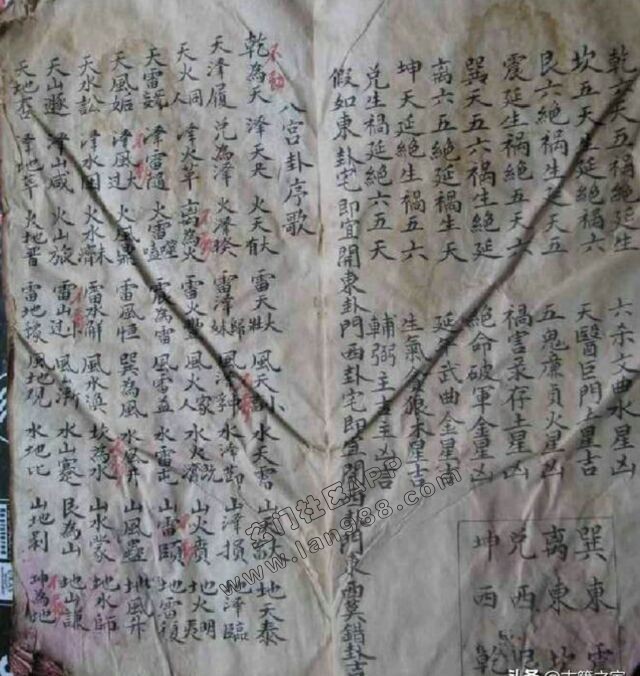 乾六天五禍絕延生
坎五天生延絕禍六
艮六絕禍生延天五
震延生禍絕五天六
巽天五六禍生絕延
离六五絕延禍生天
坤天延絕生禍五六
兌生禍延絕六五天
六杀文曲水星凶
天醫巨門土星吉
五鬼廉貞火星凶
禍害祿存土星凶
絕命破軍金星凶
延年武曲金星吉
生氣貪狼木星吉
輔弼主吉主凶吉
巽東
离東
兌西
坤西 乾
假如東卦宅即宜開東卦門西卦宅即宜開西卦門東西莫錯卦吉
八宮卦序歌
不動
乾為天 澤天夬 火天大有 雷天大壯 風天小畜 水天需 山天大畜 地天泰
天澤履 兌為澤 火澤睽 雷澤歸妹 風澤中孚 水澤節 山澤損 地澤臨
天火同人 澤火革 离為火 雷火豐 風火家人 水火既濟 山火賁 地火明夷
天雷無妄 澤雷隨 火雷噬嗑 震為雷 風雷益 水雷屯 山雷頤 地雷復
天風姤 澤風大過 火風鼎 雷風恒 巽為風 水風井 山風蠱 地風升
天水訟 澤水困 火水未濟 雷水解 風水渙 坎為水 山水蒙 地水師
天山遯 澤山咸 火山旅 雷山小過 風山漸 水山蹇 艮為山 地山謙
天地否 澤地萃 火地晉 雷地豫 風地观 水地比 山地剝 坤為地
玄门社区APP
www.lang988.com
头条 @古籍之家